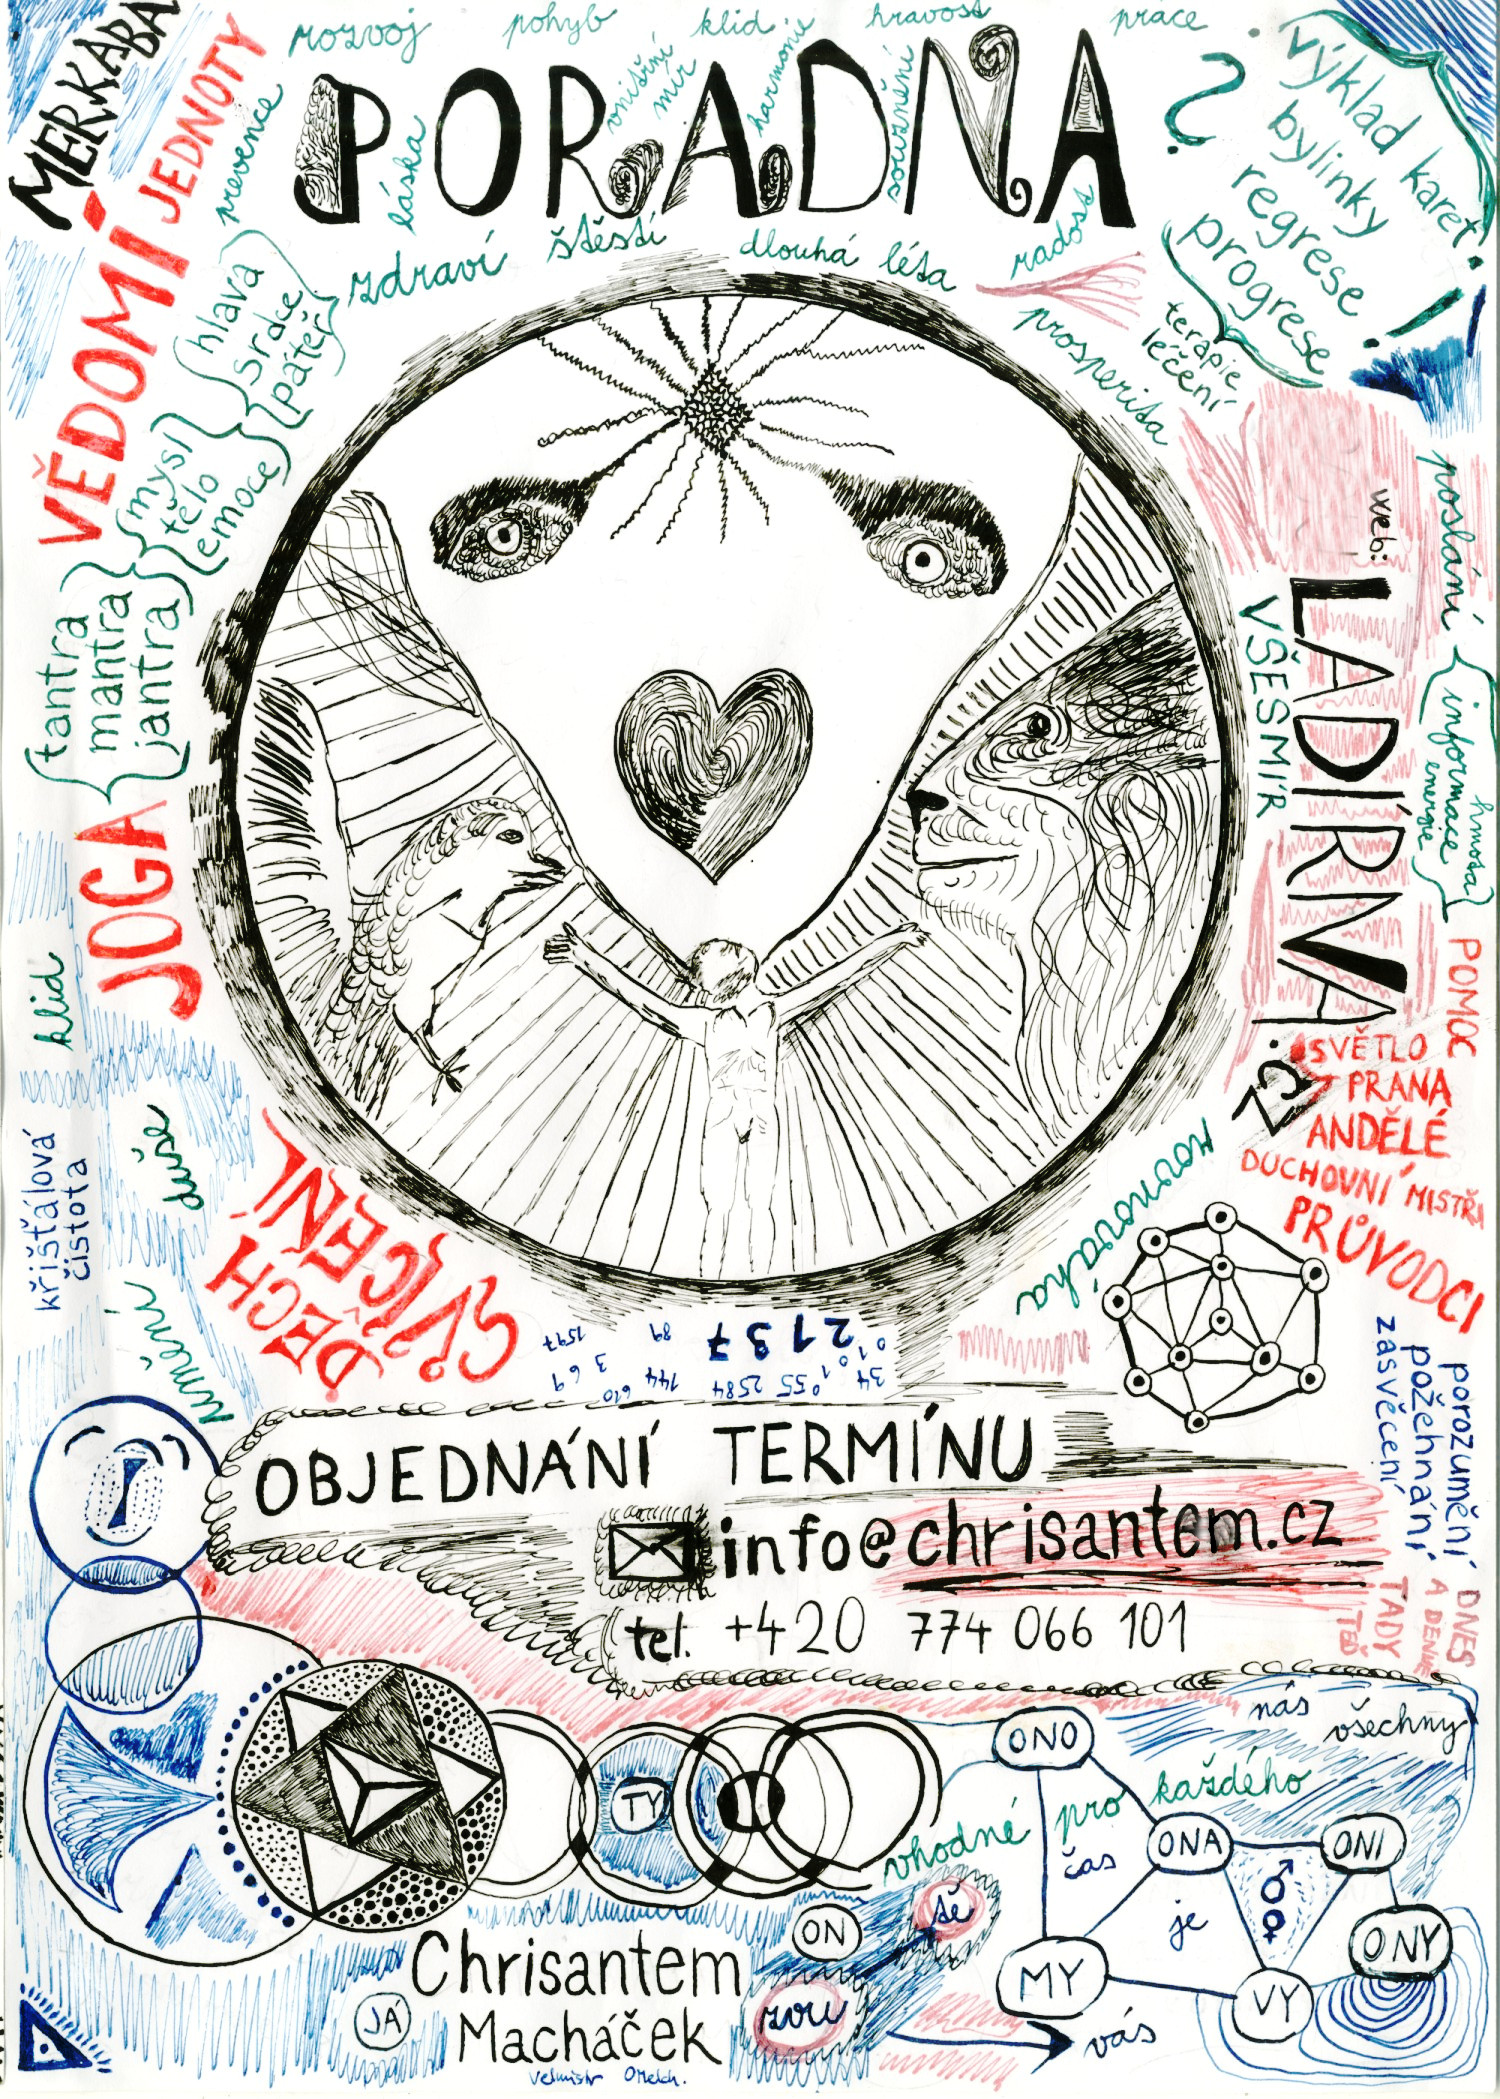 MERKABA
VĚDOMÍ
JEDNOTY
prevence
rozvoj
pohyb
klid
hravost
práce
PORADNA
láska
vnitřní
mír
harmonie
souznění
zdraví
štěstí
dlouhá léta
radost
prosperita
?
výklad karet
bylinky
regrese
progrese
!
terapie
léčení
hlava
srdce
páteř
mysl
tělo
emoce
tantra
mantra
jantra
JOGA
klid
křišťálová
čistota
duše
umění
DECH
CVIČENÍ
web:
LADÍRNA.CZ
VŠESMÍR
poslání
informace
energie
hmota
POMOC
SVĚTLO
PRANA
ANDĚLÉ
DUCHOVNÍ MISTŘI
PRŮVODCI
rovnováha
2137
1597
89
3 69
610
144
2584
55
34
0 1 0 1 0
porozumění
požehnání
zasvěcení
DNES
A DENNĚ
TADY
TEĎ
OBJEDNÁNÍ TERMÍNU
info@chrisantem.cz
tel. +420 774 066 101
nás
všechny
ONO
vhodné pro každého
TY
čas
ONA
ONI
je
ON
sě
ONY
MY
VY
Chrisantem
JÁ
Macháček
zoru
vás